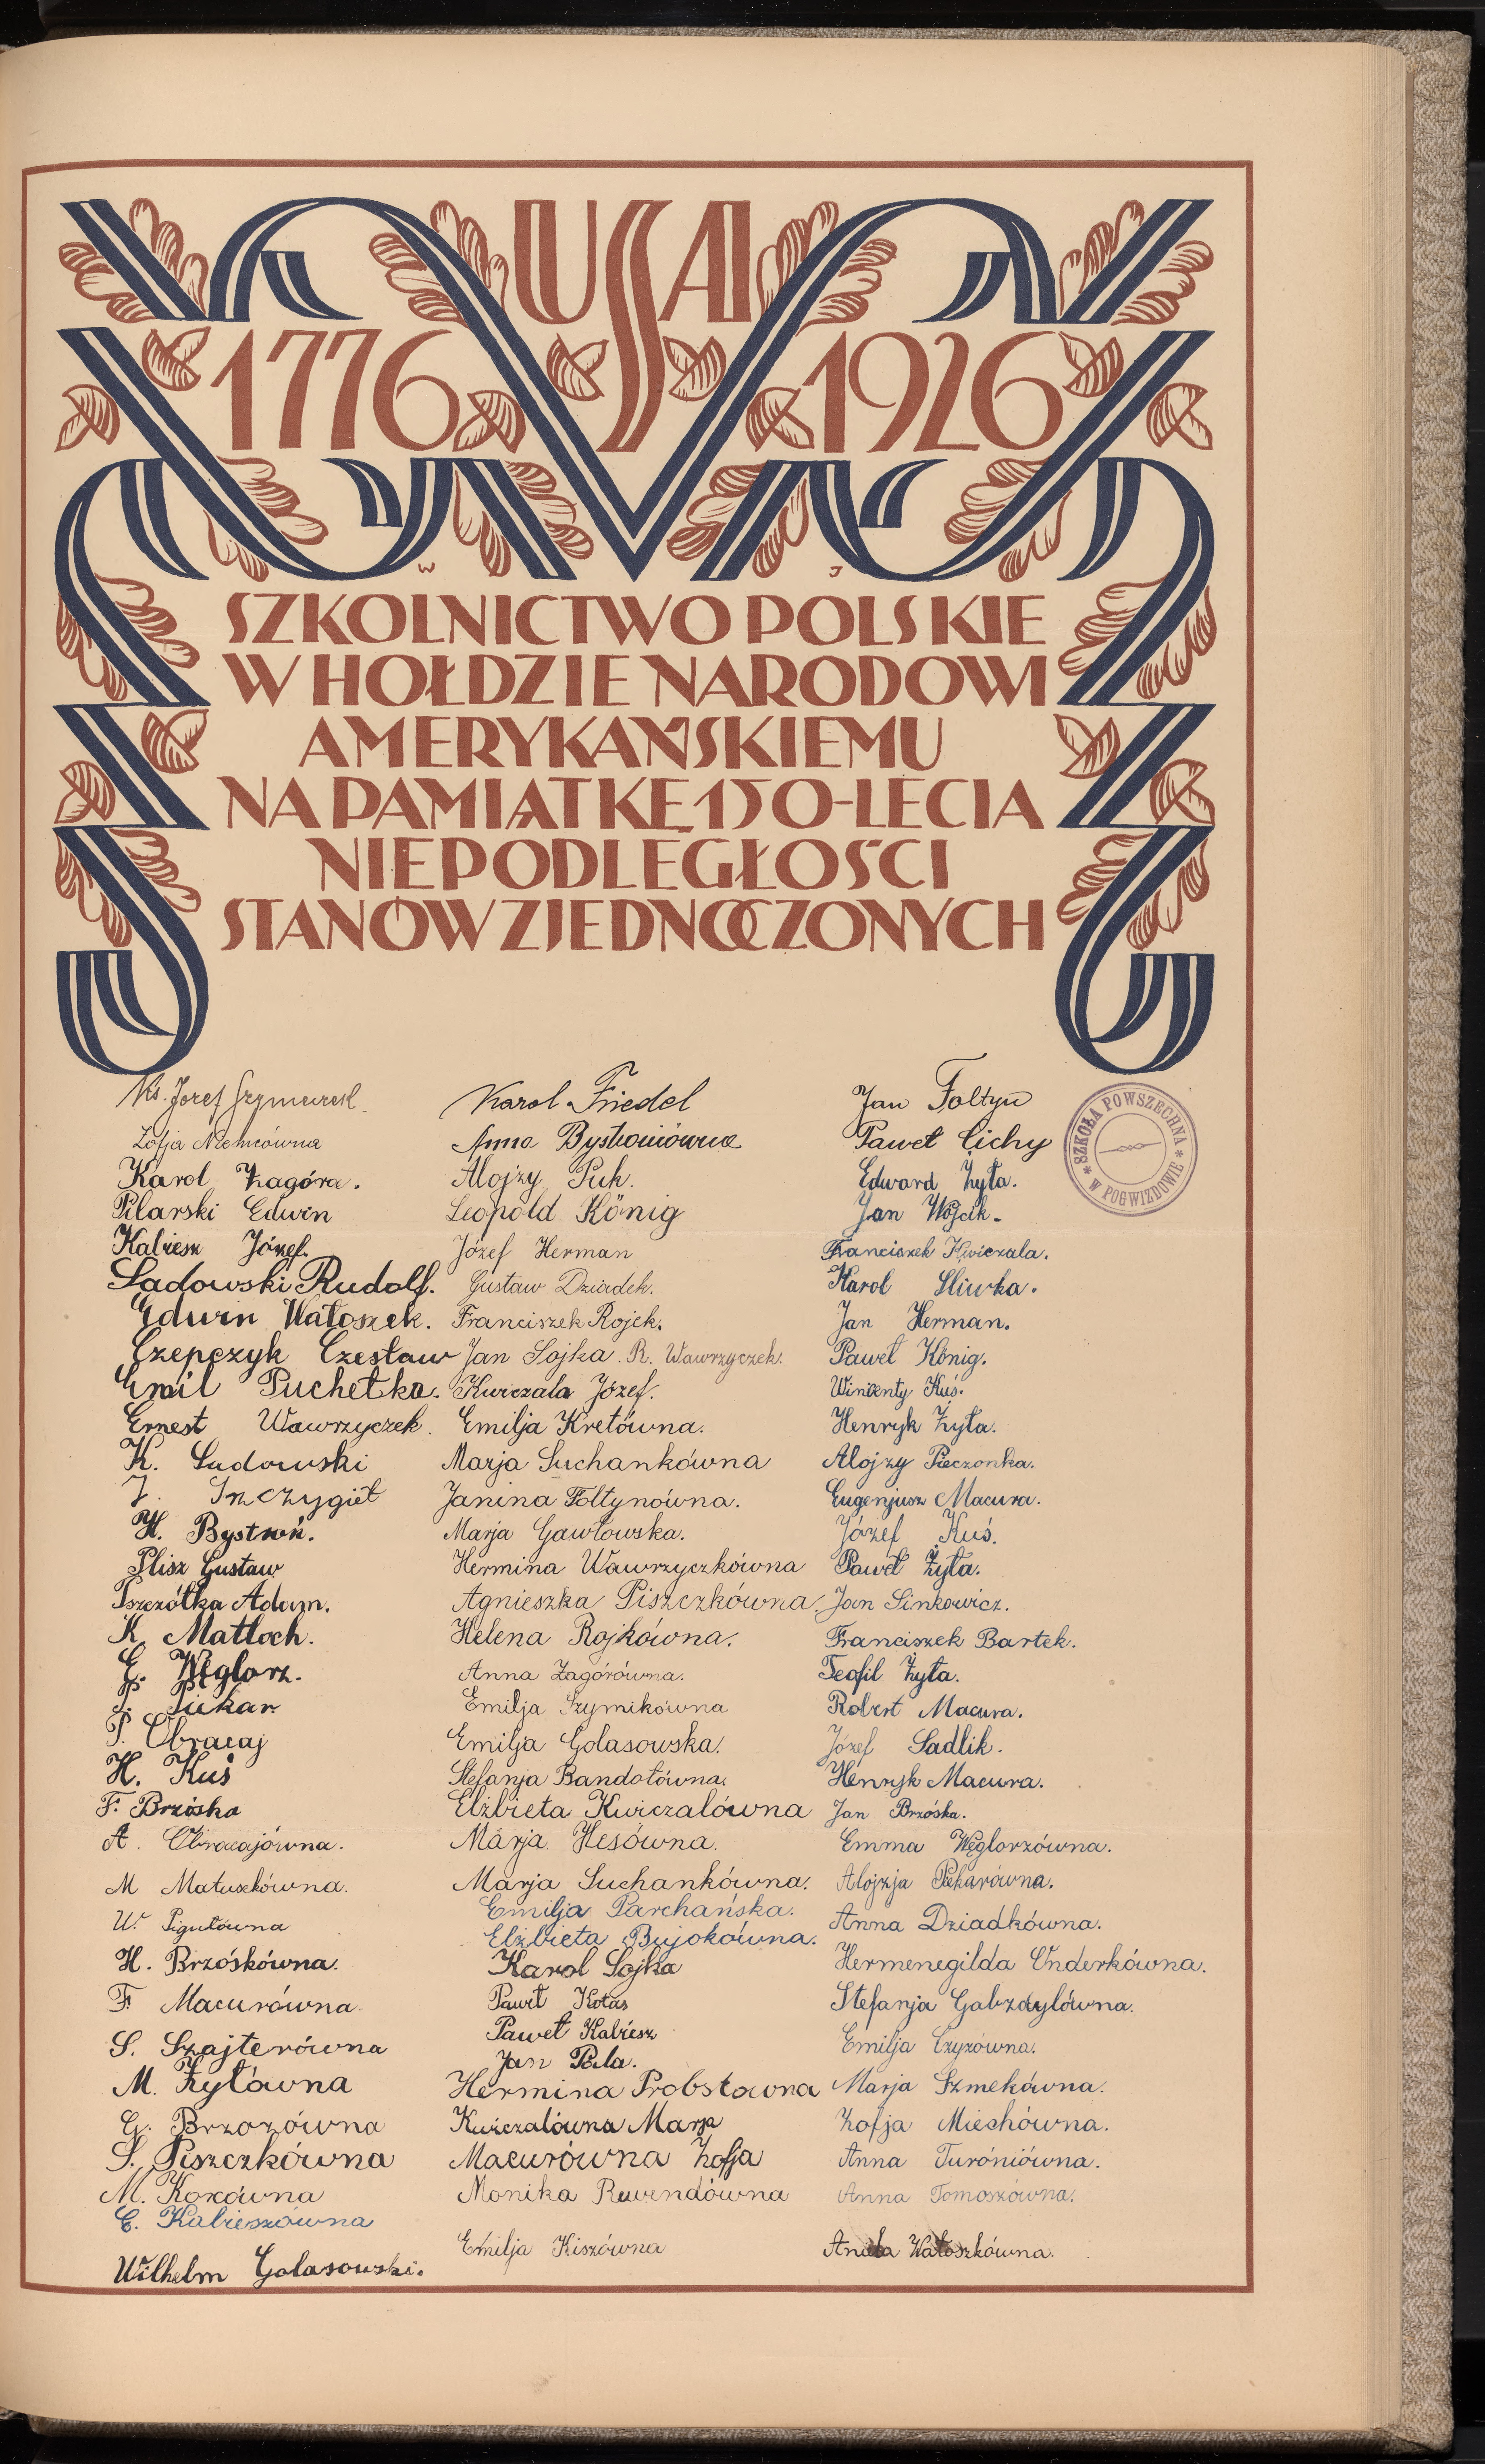 USA
1776 1926
W J
SZKOLNICTWO POLSKIE
W HOŁDZIE NARODOWI
AMERYKAŃSKIEMU
NA PAMIĄTKĘ 150-LECIA
NIEPODLEGŁOŚCI
STANÓW ZJEDNOCZONYCH
Ks. Józef
Zofja Niemcówna
Karol Żagóra.
Pilarski Edwin
Kabiesz Józef.
Sadowski Rudolf.
Edwin Watoszek.
Czepczyk Czesław
Emil Puchetka.
Ernest Wawrzyczek.
K. Sadowski
J.
H. Bystroń.
Plisz Gustaw
Pszczółka Adam.
K. Matloch.
E. Węglorz.
J. Piekar
P. Obracaj
H. Kuś
F. Brzóska
A. Obracajówna.
M Matuszkówna.
W. Pigułówna
H. Brzóskówna.
F. Macurówna.
S. Szajterówna
M. Żyłówna
G. Brzozówna
S. Piszczkówna
M. Kozówna
E. Kabieszówna
Wilhelm Golasowski.
Karol Friedel
Anna Bystroniówna
Alojzy Puk.
Leopold König
Józef Herman
Gustaw Dziadek.
Franciszek Rojek.
Jan Sojka. R. Wawrzyczek.
Kwiczala Józef.
Emilja Kretówna.
Marja Suchankówna
Janina Foltynówna.
Marja Gawłowska.
Hermina Wawrzyczkówna
Agnieszka Piszczkówna
Helena Rojkówna.
Anna Zagórówna.
Emilja Szymikówna
Emilja Golasowska.
Stefanja Bandołówna.
Elżbieta Kwiczalówna
Marja Hesówna.
Marja Suchankówna.
Emilja Parchańska.
Elżbieta Bujokówna.
Karol Sojka
Paweł Kotas
Paweł Kabiesz
Jan Pala.
Hermina Probstówna
Kwiczalówna Marja
Macurówna Zofja
Monika Rewendówna
Emilja Kiszówna
Jan Foltyn
Paweł Cichy
Edward Żyła.
Jan Wójcik.
Franciszek Kwiczala.
Karol Śliwka.
Jan Herman.
Paweł König.
Wincenty Kuś.
Henryk Żyła.
Alojzy Pieczonka.
Eugenjusz Macura.
Józef Kuś.
Paweł Żyła.
Jan Sinkowicz.
Franciszek Bartek.
Teofil Żyła.
Robert Macura.
Józef Sadlik.
Henryk Macura.
Jan Brzóska.
Emma Węglorzówna.
Alojzja Piekarówna.
Anna Dziadkówna.
Hermenegilda Onderkówna.
Stefanja Gabzdylówna.
Emilja Czyżówna.
Marja Szmekówna.
Zofja Mieshówna.
Anna Turóniówna.
Anna Tomoszówna.
Watoszkówna.
* SZKOŁA POWSZECHNA *
W POGWIZDOWIE